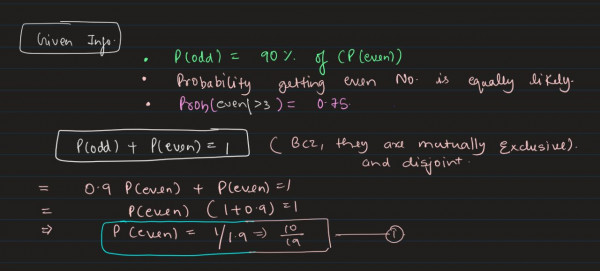 Given Info.
• P(odd) = 90% of (P(even))
• Probability getting even No. is equally likely.
• Prob(even|>3) = 0.75.
P(odd) + P(even) = 1 (Bcz, they are mutually exclusive).
and disjoint.
= 0.9 P(even) + P(even) = 1
= P(even) (1+0.9) = 1
⇒ P(even) = 1/1.9 ⇒ 10/19 —— ①